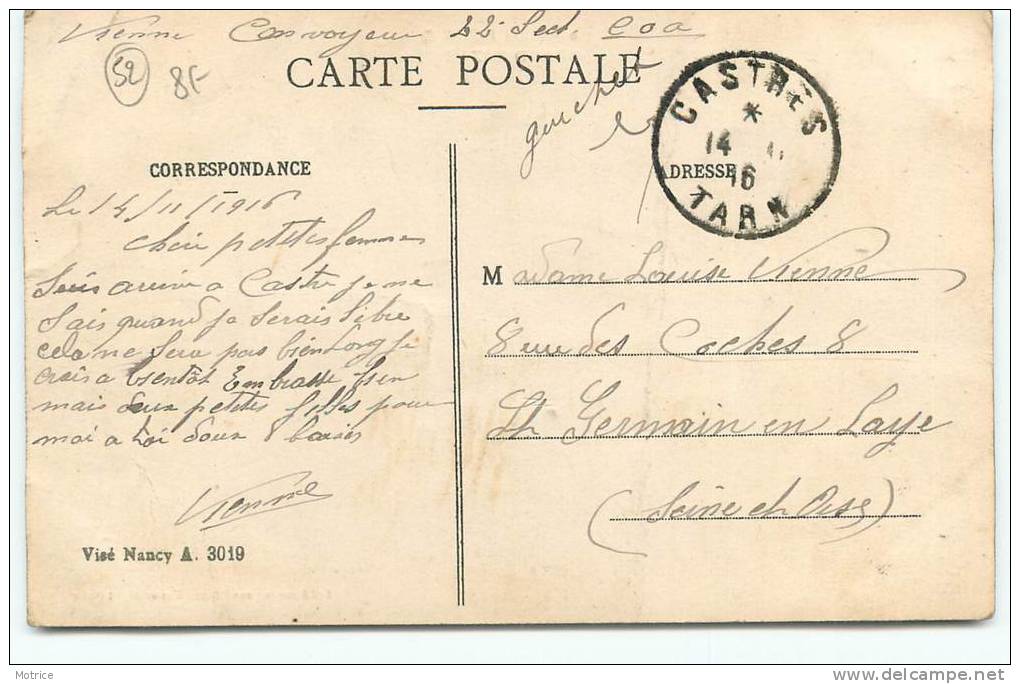 Vienne Convoyeur 22e Sect. COA
52
8F
CARTE POSTALE
guichet
CASTRES
14
16
TARN
CORRESPONDANCE
ADRESSE
Le 14/11/1916
Cheir petites femmes
Suis arrivé a Castre je ne
sais quand je serais libre
cela ne sera pas bien long je
crois a bientôt Embrasse bien
mais deux petites filles pour
moi a toi doux baisés
Vienne
Madame Louise Vienne
8 rue des Coches 8
St Germain en Laye
(Seine et Oise)
Visé Nancy A. 3019
Motrice
www.delcampe.net